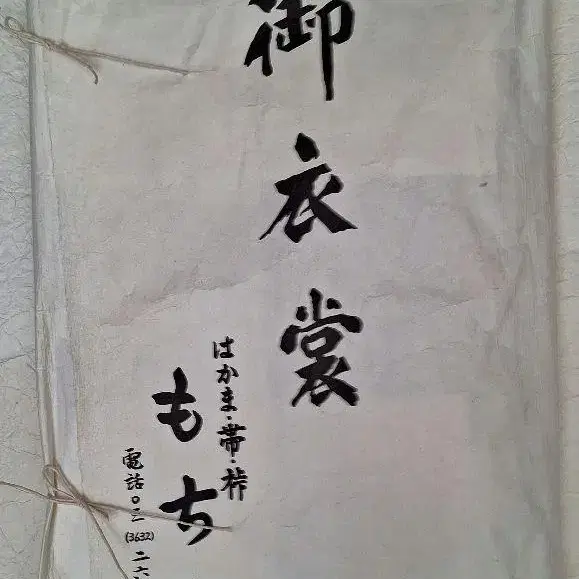 御衣裳
はかま・帯・裃
もち
電話〇三(3632)二六